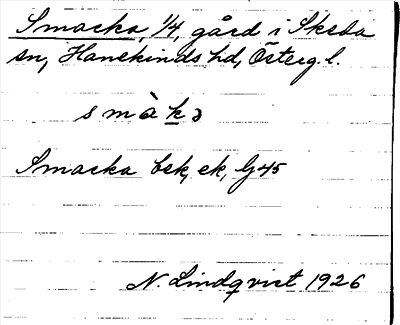 Smacka, 1/4, gård i Skeda
sn, Hanekinds hd, Österg. l.
s m à k ə
Smacka Esk, ek, Gj 45
N. Lindqvist 1926